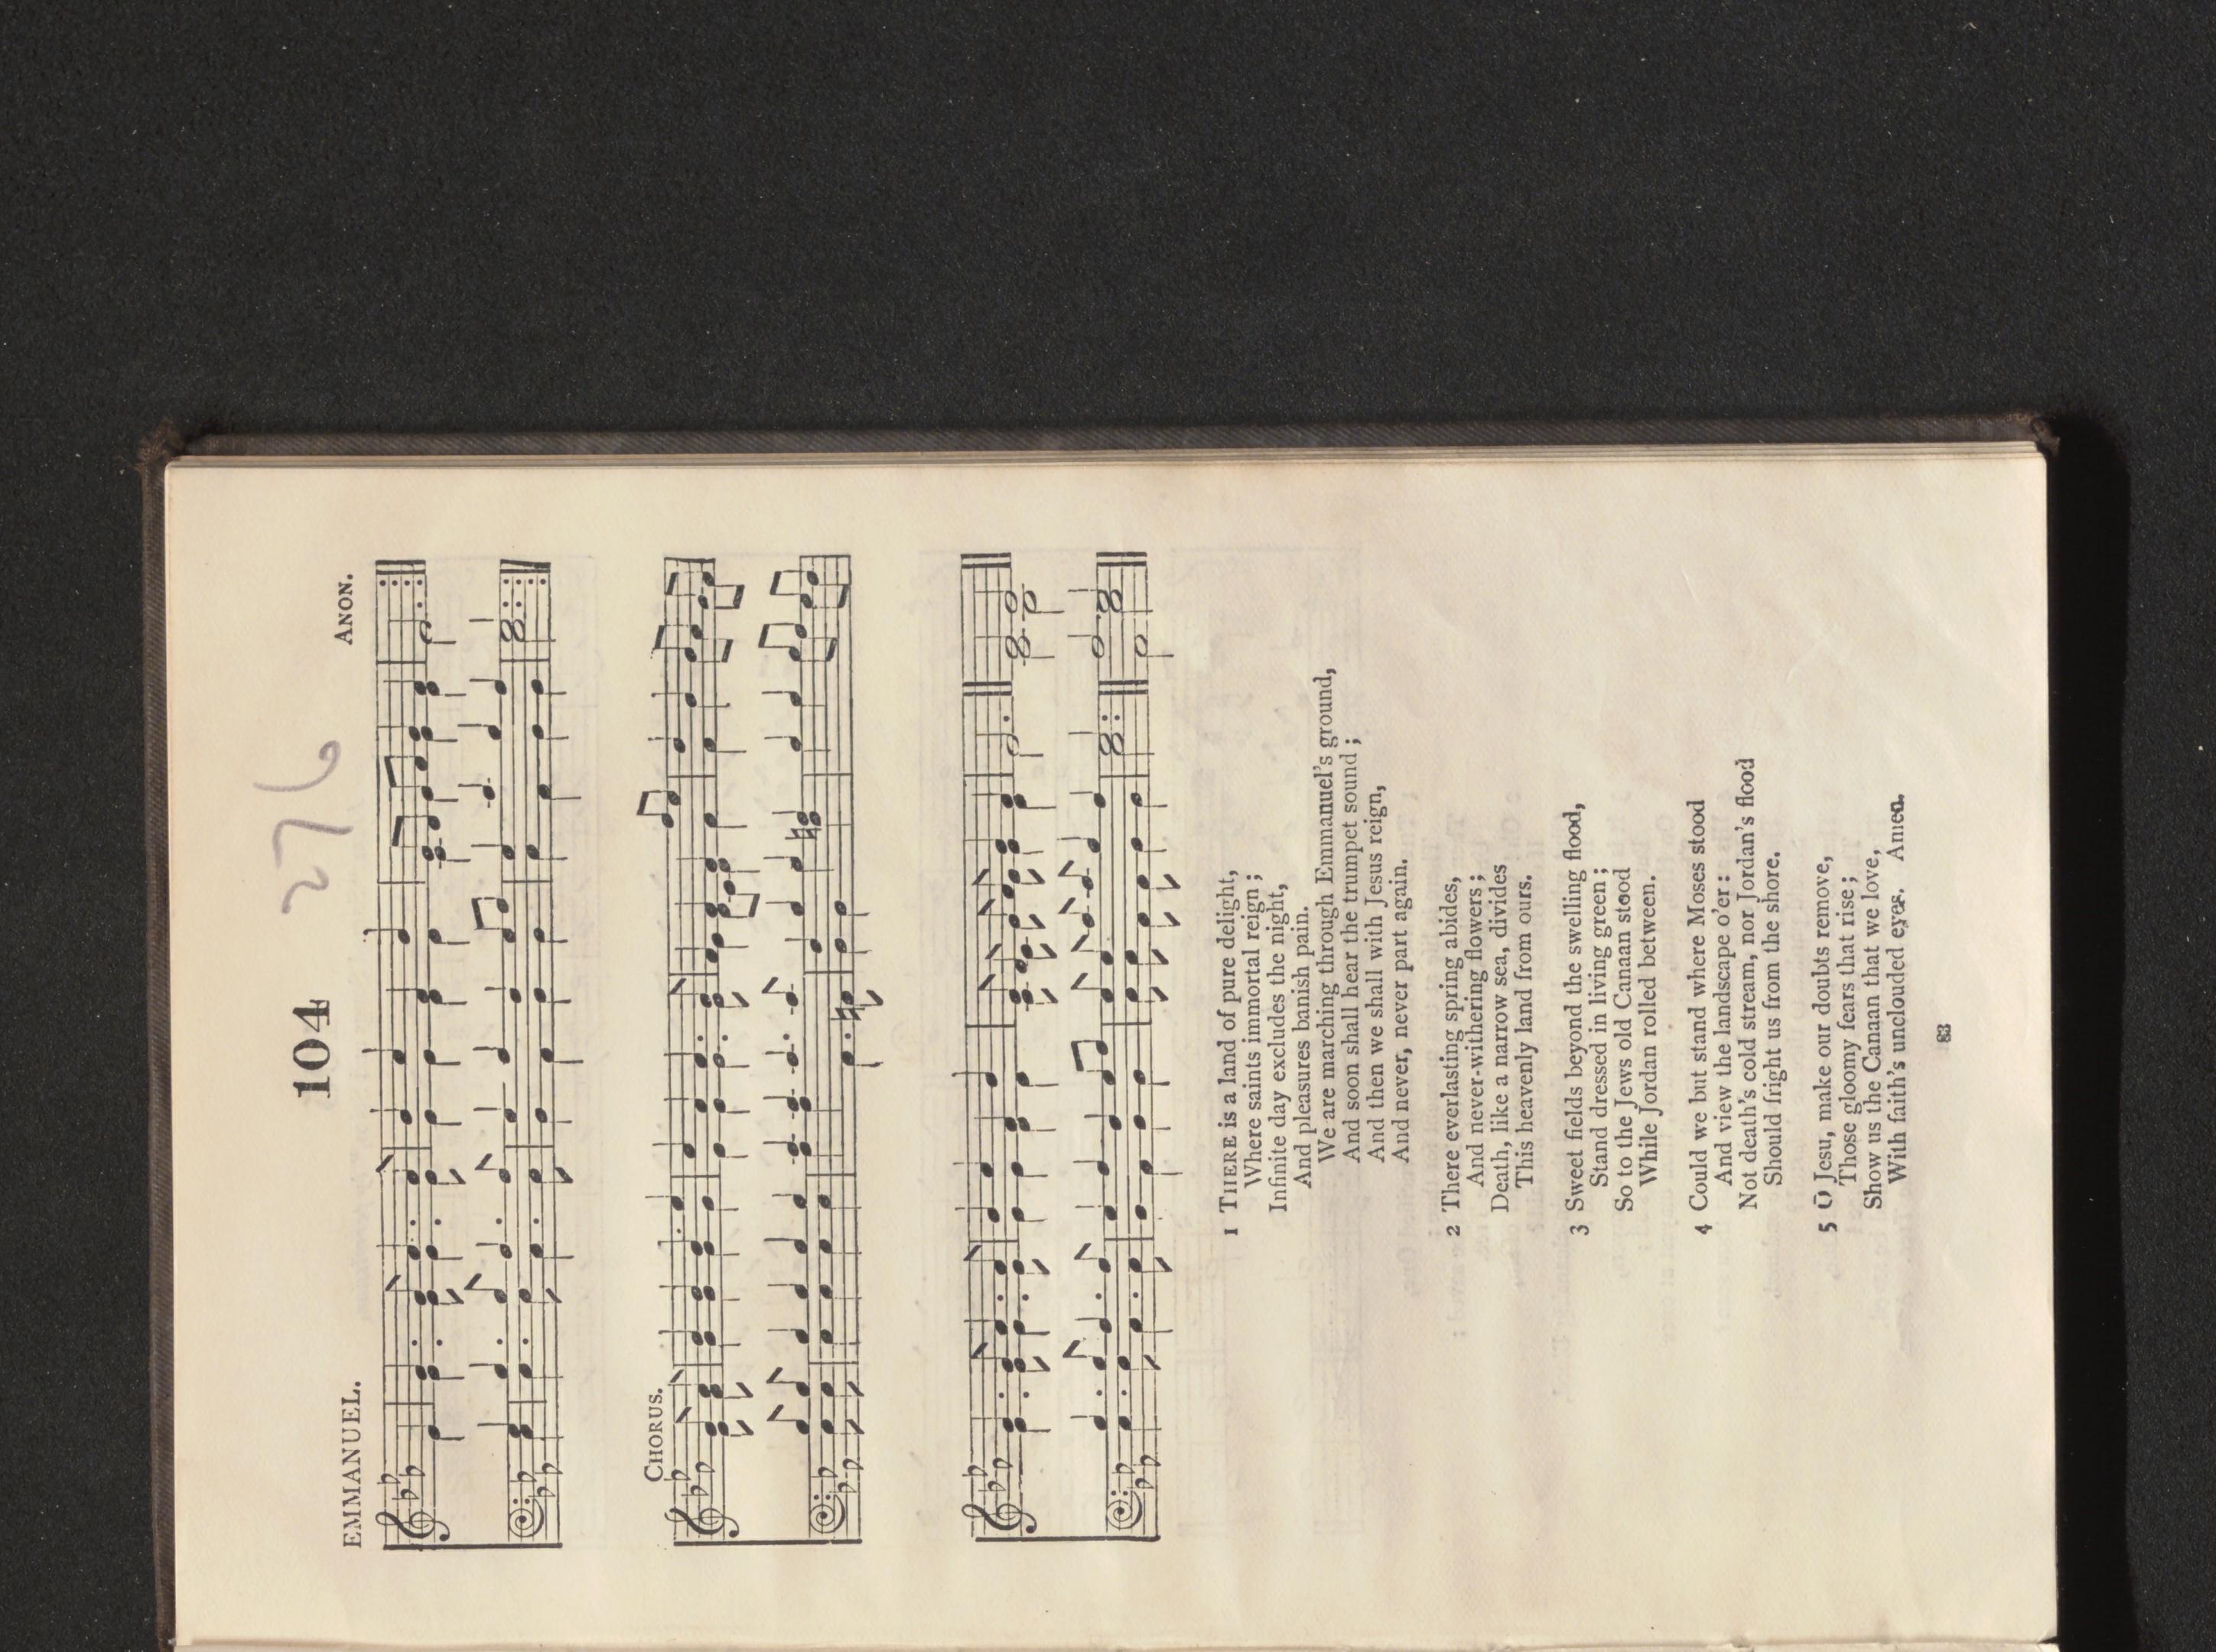 276
104
EMMANUEL.
ANON.
CHORUS.
1 THERE is a land of pure delight,
Where saints immortal reign;
Infinite day excludes the night,
And pleasures banish pain.
We are marching through Emmanuel's ground,
And soon shall hear the trumpet sound;
And then we shall with Jesus reign,
And never, never part again.
2 There everlasting spring abides,
And never-withering flowers;
Death, like a narrow sea, divides
This heavenly land from ours.
3 Sweet fields beyond the swelling flood,
Stand dressed in living green;
So to the Jews old Canaan stood
While Jordan rolled between.
4 Could we but stand where Moses stood
And view the landscape o'er:
Not death's cold stream, nor Jordan's flood
Should fright us from the shore.
5 O Jesu, make our doubts remove,
Those gloomy fears that rise;
Show us the Canaan that we love,
With faith's unclouded eyes. Amen.
83